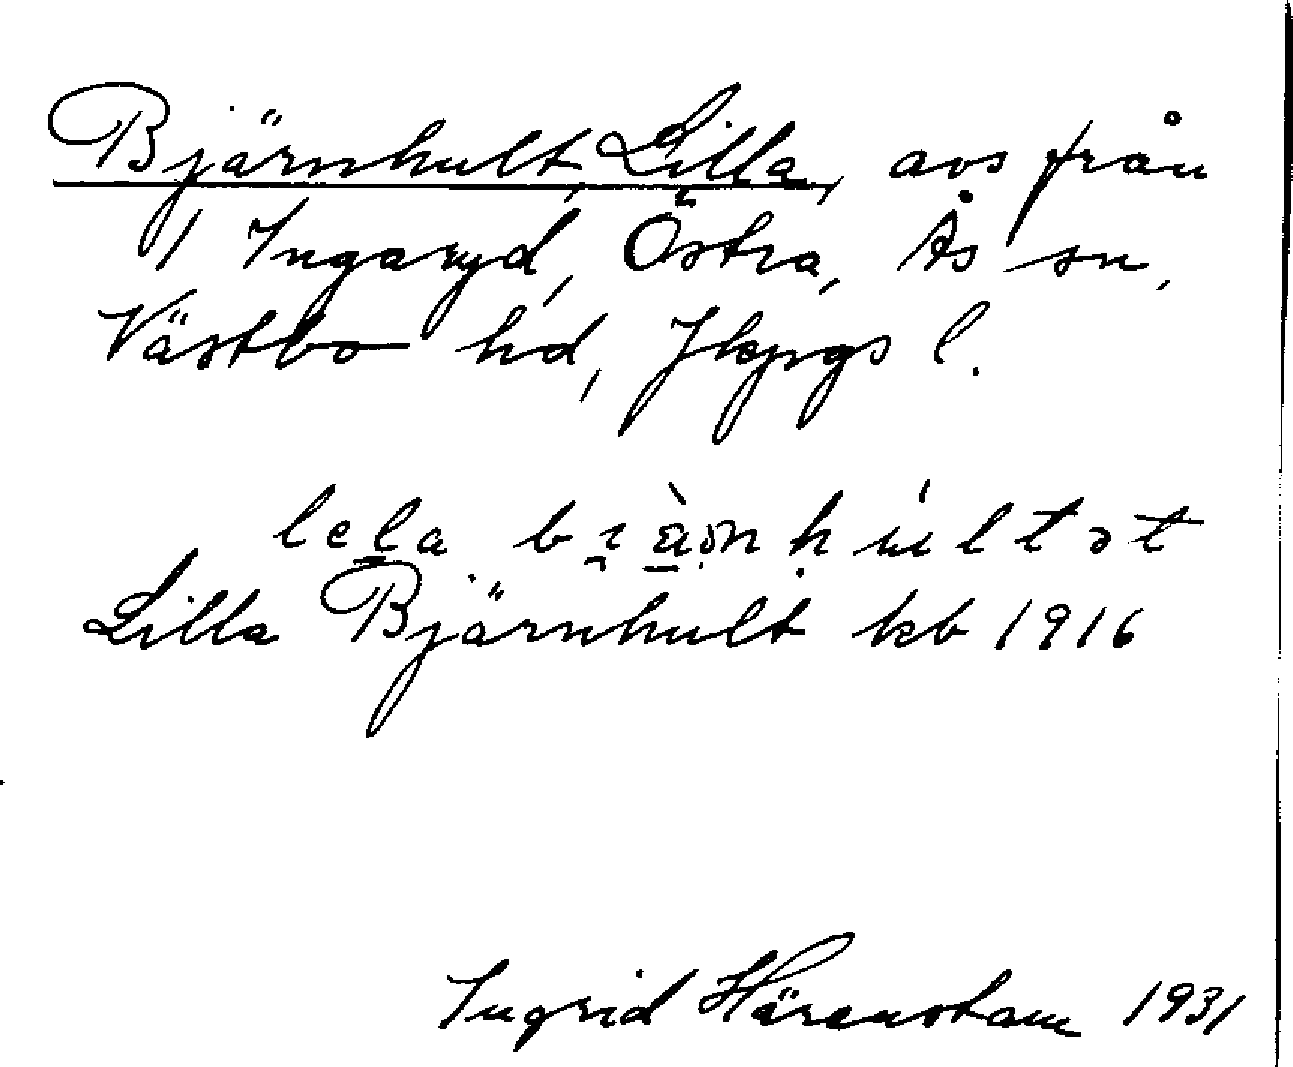 Björnhult, Lilla, avs från
1 Ingaryd, Östra, Ås sn,
Västbo hd, Jkpgs l.
Lilla Björnhult kb 1916
Ingrid Härenstam 1931